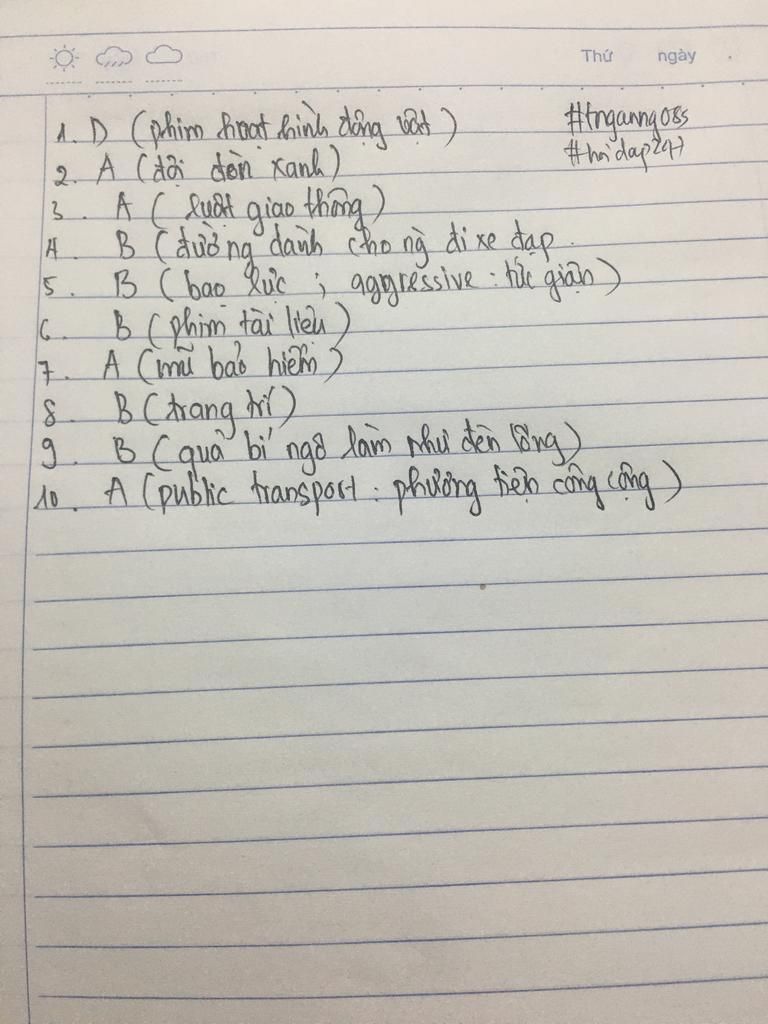 Thứ ngày
1. D (phim hoạt hình động vật)
#tnganng085
#hoidap247
2. A (đợi đèn xanh)
3. A (luật giao thông)
4. B (đường dành cho ng đi xe đạp.
5. B (bạo lực ; aggressive : tức giận)
6. B (phim tài liệu)
7. A (mũ bảo hiểm)
8. B (trang trí)
9. B (quả bí ngô làm như đèn lồng)
10. A (public transport : phương tiện công cộng)